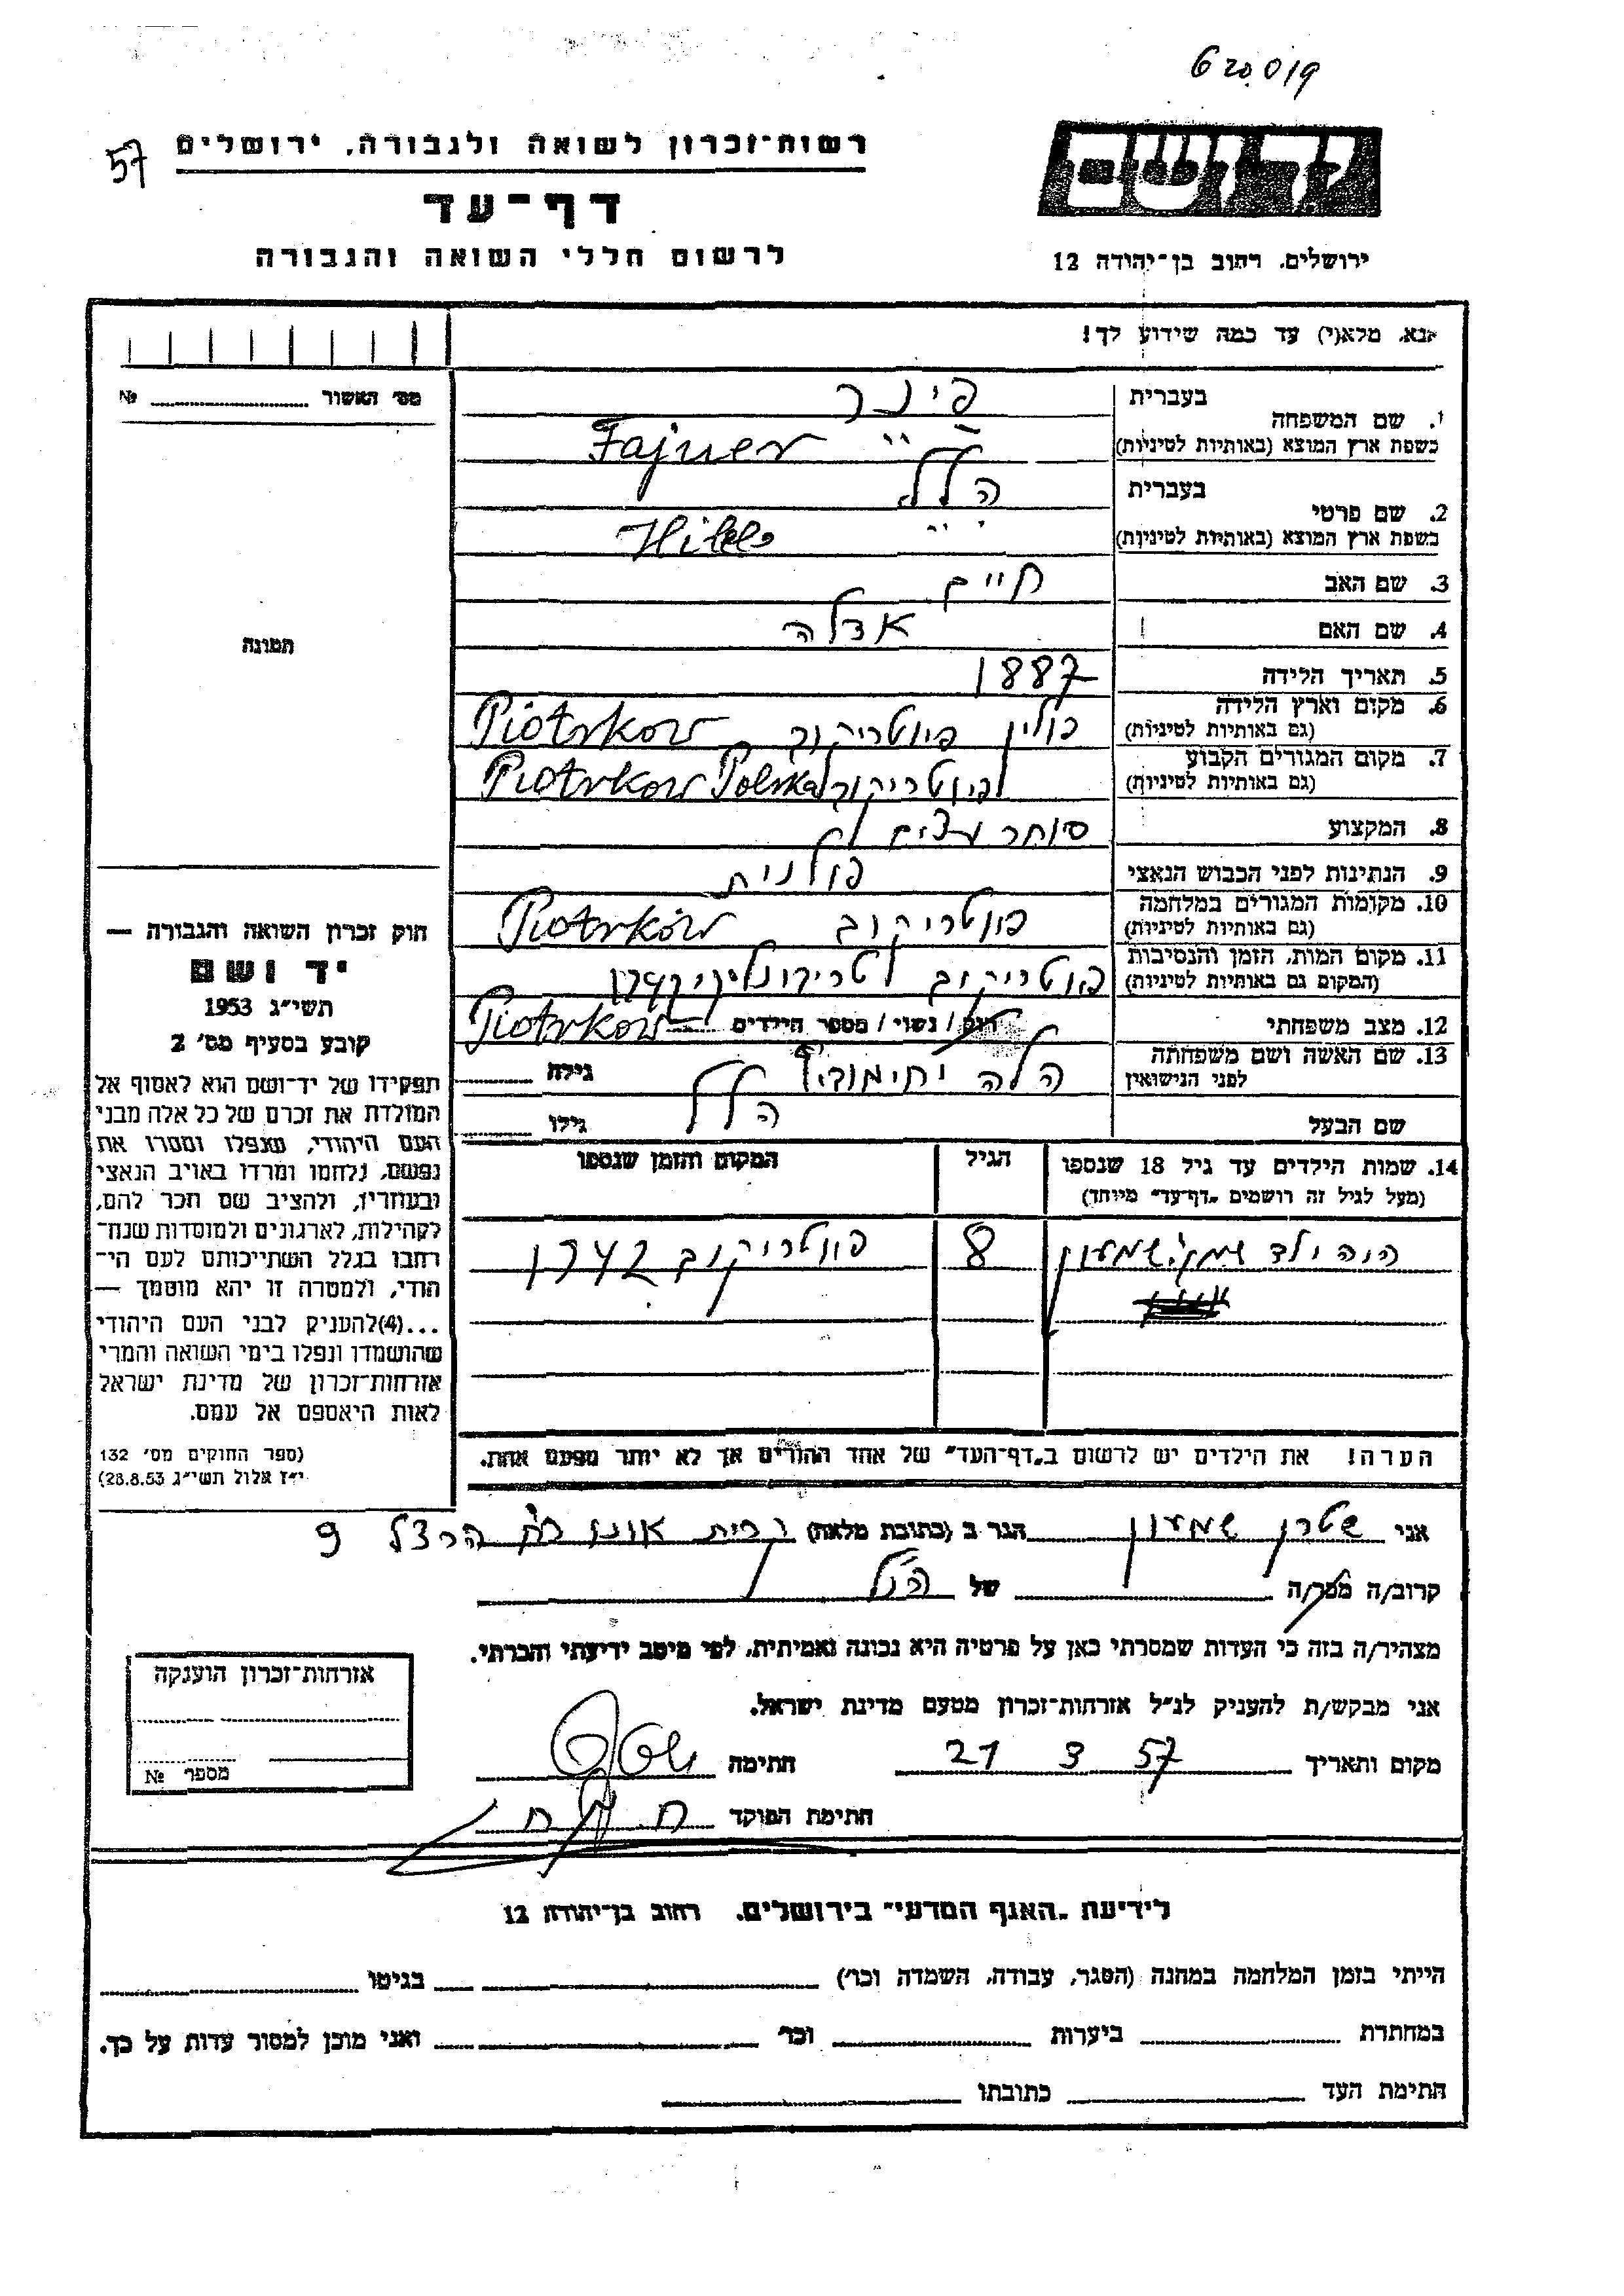 57
רשות-זכרון לשואה ולגבורה, ירושלים
דף-עד
לרשום חללי השואה והגבורה
ידושם
ירושלים, רחוב בן-יהודה 12
אנא, מלא(י) עד כמה שידוע לך!
מס' האשור № 
1. שם המשפחה
בעברית פינר
בשפת ארץ המוצא (באותיות לטיניות) Fajner
2. שם פרטי
בעברית הלל
בשפת ארץ המוצא (באותיות לטיניות)
3. שם האב חיים
4. שם האם אדלה
5. תאריך הלידה 1887
6. מקום וארץ הלידה פולין פיוטריקוב Piotrkow
(גם באותיות לטיניות)
7. מקום המגורים הקבוע פיוטריקוב Piotrkow Polska
(גם באותיות לטיניות)
8. המקצוע סוחר עצים
9. הנתינות לפני הכבוש הנאצי פולנית
10. מקומות המגורים במלחמה פוטריקוב Piotrków
(גם באותיות לטיניות)
11. מקום המות, הזמן והנסיבות פוטריקוב
(המקום גם באותיות לטיניות) Piotrkow
12. מצב משפחתי רווק / נשוי / מספר הילדים
13. שם האשה ושם משפחתה הלה גילה
לפני הנישואין
שם הבעל הלל גילו
14. שמות הילדים עד גיל 18 שנספו הגיל המקום והזמן שנספו
(מעל לגיל זה רושמים "דף-עד" מיוחד)
היה ילד שמו שמעון 8 פוטריקוב 1942
הערה! את הילדים יש לרשום ב"דף-העד" של אחד ההורים אך לא יותר מפעם אחת.
תמונה
חוק זכרון השואה והגבורה —
יד ושם
תשי"ג 1953
קובע בסעיף מס' 2
תפקידו של יד-ושם הוא לאסוף אל
המולדת את זכרם של כל אלה מבני
העם היהודי, שנפלו ומסרו את
נפשם, נלחמו ומרדו באויב הנאצי
ובעוזריו, ולהציב שם וזכר להם,
לקהילות, לארגונים ולמוסדות שנח-
רבו בגלל השתייכותם לעם הי-
הודי, ולמטרה זו יהא מוסמך —
...(4) להעניק לבני העם היהודי
שהושמדו ונפלו בימי השואה והמרי
אזרחות-זכרון של מדינת ישראל
לאות היאספם אל עמם.
(ספר החוקים מס' 132
י"ז אלול תשי"ג 28.8.53)
אני שטרן שמעון הגר ב (כתובת מלאה) קרית אונו רח הרצל 9
קרוב/ה מכר/ה של הנ"ל
מצהיר/ה בזה כי העדות שמסרתי כאן על פרטיה היא נכונה ואמיתית, לפי מיטב ידיעתי והכרתי.
אני מבקש/ת להעניק לנ"ל אזרחות-זכרון מטעם מדינת ישראל.
מקום ותאריך 21 3 57 חתימה
חתימת הפוקד
אזרחות-זכרון הוענקה
מספר №
לידיעת "האגף המדעי" בירושלים, רחוב בן-יהודה 12
הייתי בזמן המלחמה במחנה (הסגר, עבודה, השמדה וכו') בגיטו
במחתרת ביערות וכו' ואני מוכן למסור עדות על כך.
חתימת העד כתובתו